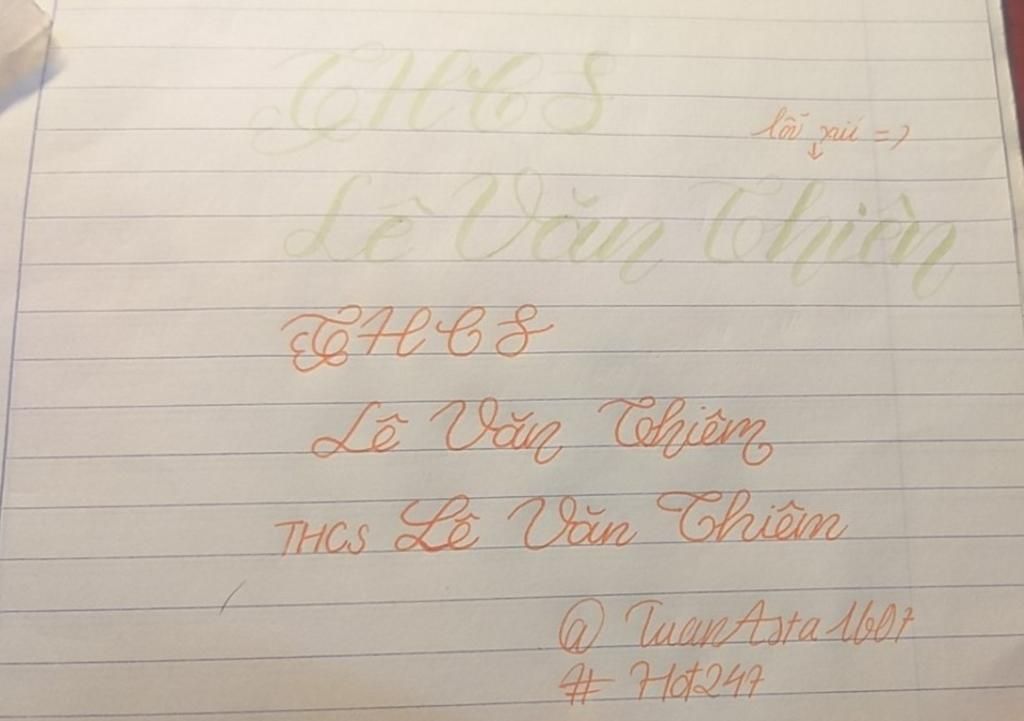 THCS
lỗi xíu =)
Lê Văn Thiên
THCS
Lê Văn Thiêm
THCS Lê Văn Thiêm
@ TuanAsta1607
# Hot247